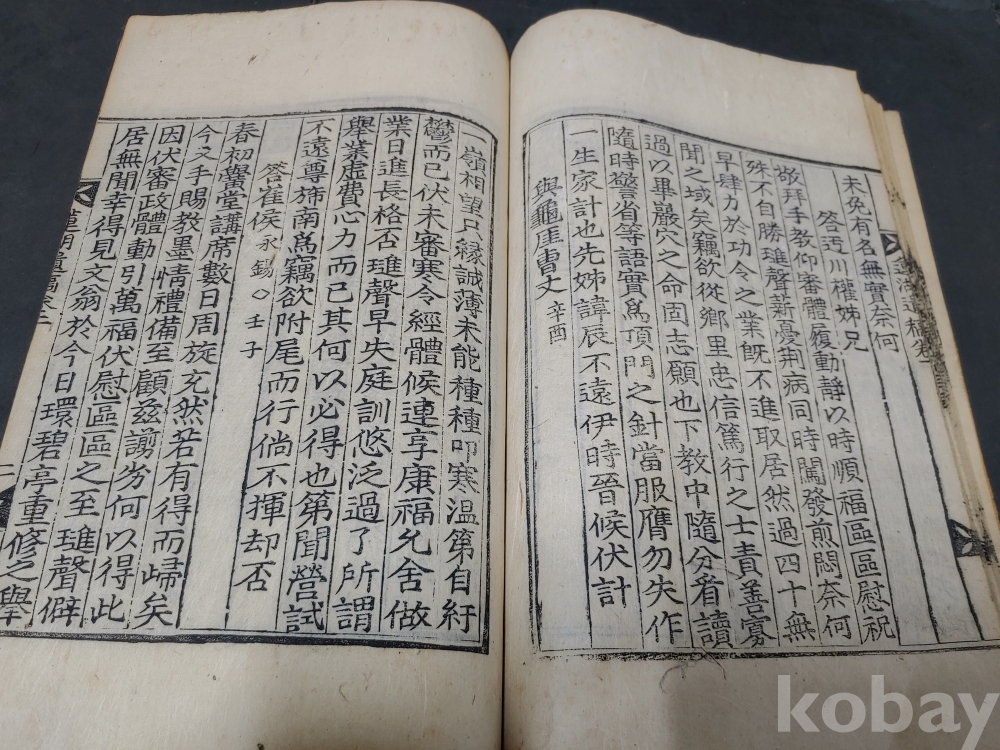 未免有名無實奈何
答透川權姊兄
敬拜手教仰審體履動靜以時順福區區慰祝
殊不自勝璡聲薪憂荆病同時闖發煎悶奈何
早肆力於功令之業旣不進取居然過四十無
聞之域矣竊欲從鄕里忠信篤行之士責善寡
過以畢巖穴之命固志願也下教中隨分看讀
隨時警省等語實爲頂門之針當服膺勿失作
一生家計也先姊諱辰不遠伊時晉候伏計
與龜厓曺丈 辛酉
一嶺相望只緣誠薄未能種種叩寒溫第自紆
鬱而已伏未審寒令經體候連享康福允舍做
業日進長格否璡聲早失庭訓悠泛過了所謂
擧業虛費心力而已其何以必得也第聞營試
不遠尊斾南爲竊欲附尾而行倘不揮却否
答崔侯 永錫 ○ 壬子
春初黌堂講席數日周旋充然若有得而歸矣
今又手賜敎墨情禮備至顧玆謭劣何以得此
因伏審政體動引萬福伏慰區區之至璡聲僻
居無聞幸得見文翁於今日環碧亭重修之擧
kobay